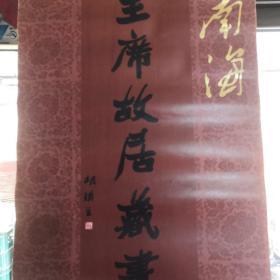 南海
主席故居藏書